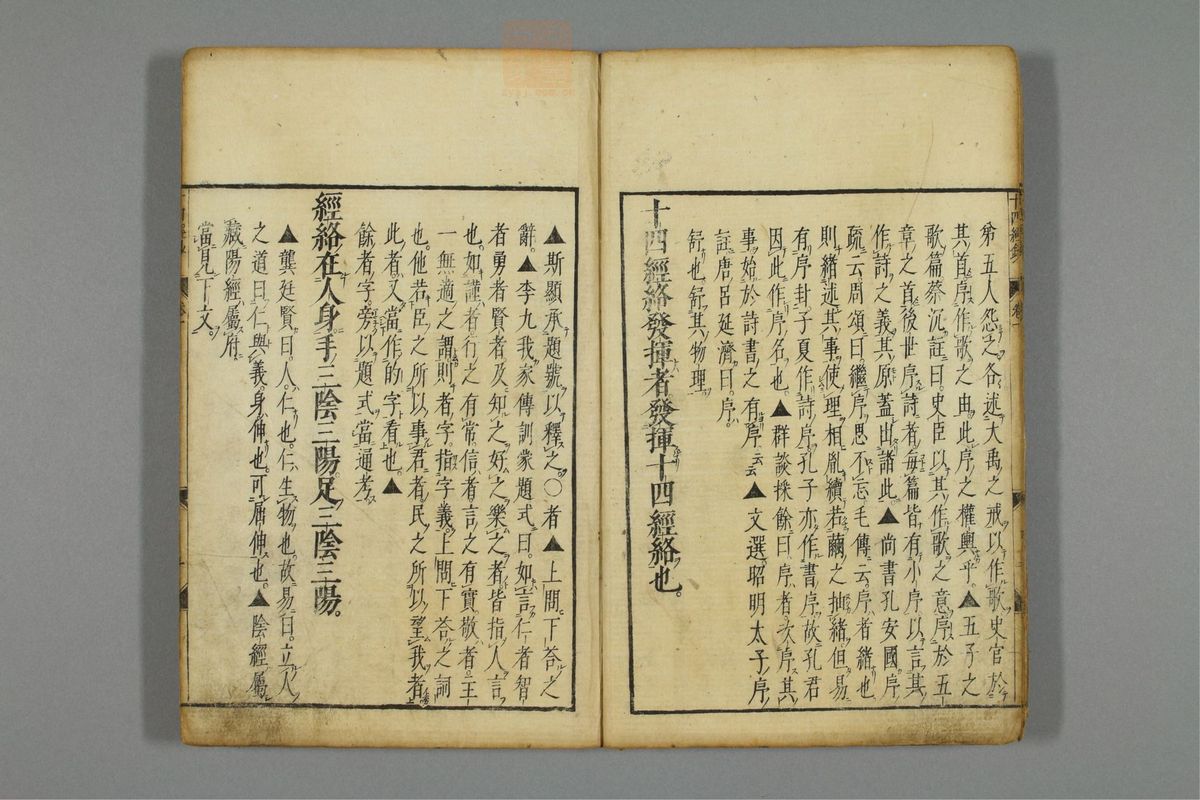 弟五人怨之各述大禹之戒以作歌史官於
其首序作歌之由此序之權輿乎▲五子之
歌篇蔡沉註曰史臣以其作歌之意序於五
章之首後世序詩者每篇皆有小序以言其
作詩之義其原蓋出諸此▲尚書孔安國序
疏云周頌曰繼序思不忘毛傳云序者緒也
則緒述其事使理相胤續若繭之抽緒但易
有序卦子夏作詩序孔子亦作書序故孔君
因此作序名也▲群談採餘曰序者次序其
事始於詩書之有序云云▲文選昭明太子序
註唐呂延濟曰序
舒也舒其物理
十四經絡發揮者發揮十四經絡也。
▲斯顯承題號以釋之○者▲上問下答之
辭▲李九我家傳訓蒙題式曰如言仁者智
者勇者賢者及知之好之樂之者皆指人言
也如謹者行之有常信者言之有實敬者主
一無適之謂則者字指字義上問下答之詞
也他若臣之所以事君者民之所以望我者
此者又當作的字看也▲
餘者字旁以題式當通考
經絡在人身手三陰三陽足三陰三陽。
▲龔廷賢曰人仁也仁生物也故易曰立人
之道曰仁與義身伸也可屈伸也▲陰經屬
藏陽經屬府
當見下文